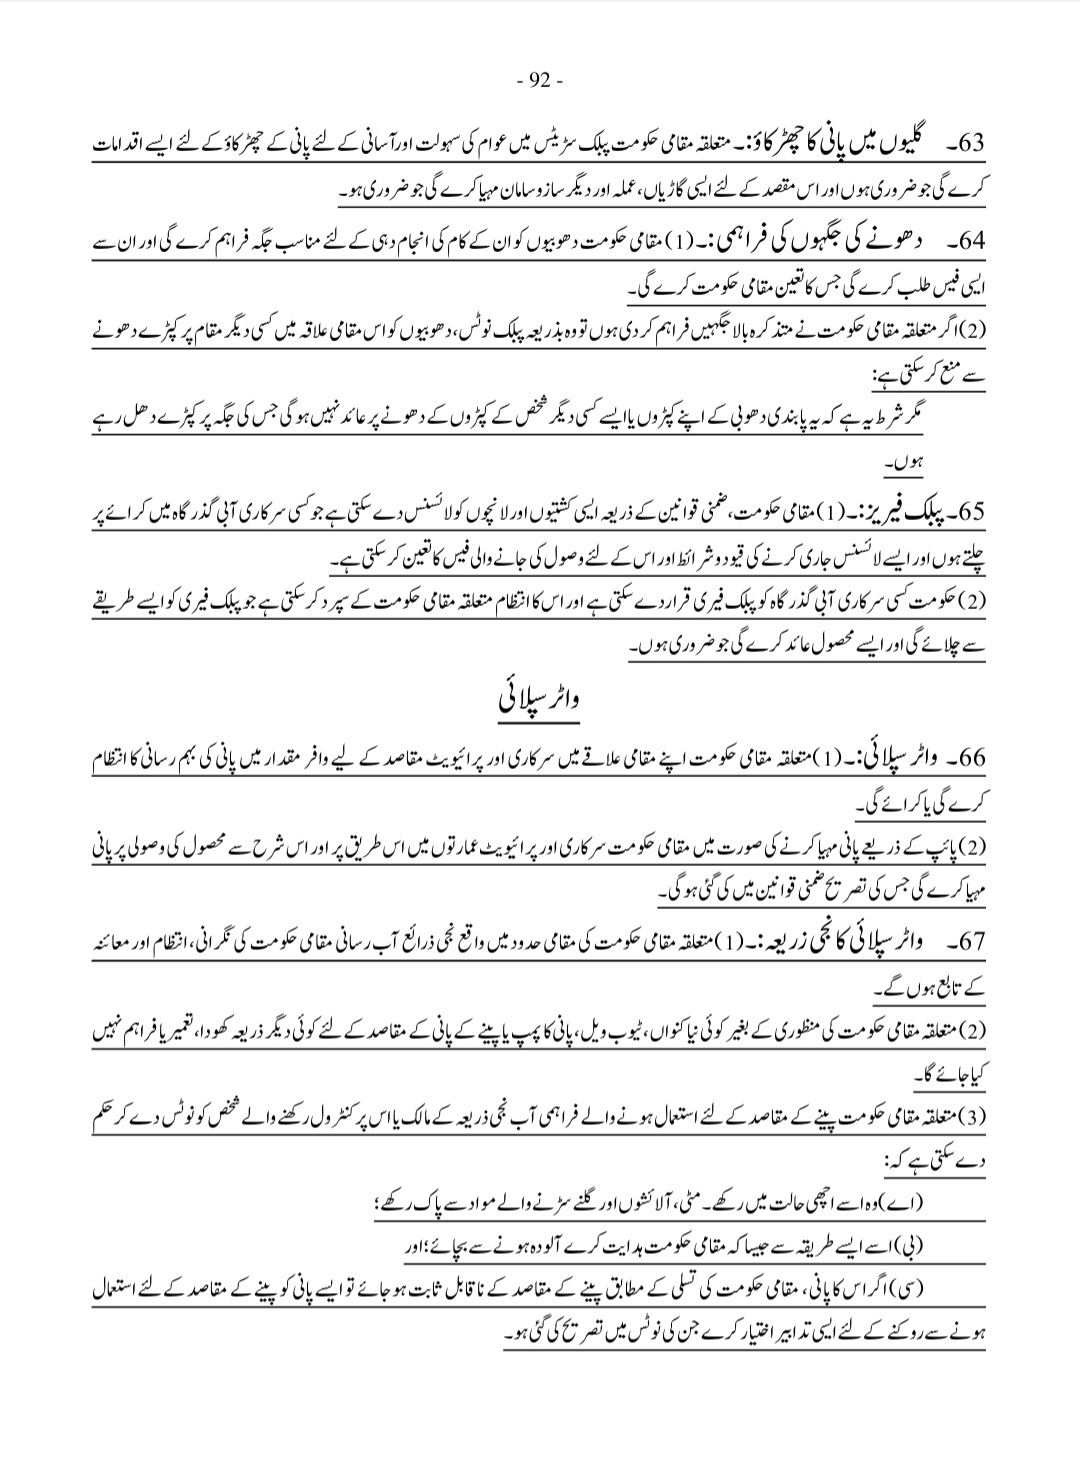 - 92 -
63۔ گلیوں میں پانی کا چھڑکاؤ:۔ متعلقہ مقامی حکومت پبلک سڑیٹس میں عوام کی سہولت اور آسانی کے لئے پانی کے چھڑکاؤ کے لئے ایسے اقدامات
کرے گی جو ضروری ہوں اور اس مقصد کے لئے ایسی گاڑیاں، عملہ اور دیگر سازو سامان مہیا کرے گی جو ضروری ہو۔
64۔ دھونے کی جگہوں کی فراہمی:۔ (1) مقامی حکومت دھوبیوں کو ان کے کام کی انجام دہی کے لئے مناسب جگہ فراہم کرے گی اور ان سے
ایسی فیس طلب کرے گی جس کا تعین مقامی حکومت کرے گی۔
(2) اگر متعلقہ مقامی حکومت نے متذکرہ بالا جگہیں فراہم کر دی ہوں تو وہ بذریعہ پبلک نوٹس، دھوبیوں کو اس مقامی علاقہ میں کسی دیگر مقام پر کپڑے دھونے
سے منع کر سکتی ہے:
مگر شرط یہ ہے کہ یہ پابندی دھوبی کے اپنے کپڑوں یا ایسے کسی دیگر شخص کے کپڑوں کے دھونے پر عائد نہیں ہو گی جس کی جگہ پر کپڑے دھل رہے
ہوں۔
65۔ پبلک فیریز:۔ (1) مقامی حکومت، ضمنی قوانین کے ذریعہ ایسی کشتیوں اور لانچوں کو لائسنس دے سکتی ہے جو کسی سرکاری آبی گذر گاہ میں کرائے پر
چلتے ہوں اور ایسے لائسنس جاری کرنے کی قیود و شرائط اور اس کے لئے وصول کی جانے والی فیس کا تعین کر سکتی ہے۔
(2) حکومت کسی سرکاری آبی گذر گاہ کو پبلک فیری قرار دے سکتی ہے اور اس کا انتظام متعلقہ مقامی حکومت کے سپرد کر سکتی ہے جو پبلک فیری کو ایسے طریقے
سے چلائے گی اور ایسے محصول عائد کرے گی جو ضروری ہوں۔
واٹر سپلائی
66۔ واٹر سپلائی:۔ (1) متعلقہ مقامی حکومت اپنے مقامی علاقے میں سرکاری اور پرائیویٹ مقاصد کے لیے وافر مقدار میں پانی کی بہم رسانی کا انتظام
کرے گی یا کرائے گی۔
(2) پائپ کے ذریعے پانی مہیا کرنے کی صورت میں مقامی حکومت سرکاری اور پرائیویٹ عمارتوں میں اس طریق پر اور اس شرح سے محصول کی وصولی پر پانی
مہیا کرے گی جس کی تصریح ضمنی قوانین میں کی گئی ہو گی۔
67۔ واٹر سپلائی کا نجی زریعہ:۔ (1) متعلقہ مقامی حکومت کی مقامی حدود میں واقع نجی ذرائع آب رسانی مقامی حکومت کی نگرانی، انتظام اور معائنہ
کے تابع ہوں گے۔
(2) متعلقہ مقامی حکومت کی منظوری کے بغیر کوئی نیا کنواں، ٹیوب ویل، پانی کا پمپ یا پینے کے پانی کے مقاصد کے لئے کوئی دیگر ذریعہ کھودا، تعمیر یا فراہم نہیں
کیا جائے گا۔
(3) متعلقہ مقامی حکومت پینے کے مقاصد کے لئے استعمال ہونے والے فراہمی آب نجی ذریعہ کے مالک یا اس پر کنٹرول رکھنے والے شخص کو نوٹس دے کر حکم
دے سکتی ہے کہ:
(اے) وہ اسے اچھی حالت میں رکھے۔ مٹی، آلائشوں اور گلنے سڑنے والے مواد سے پاک رکھے؛
(بی) اسے ایسے طریقہ سے جیسا کہ مقامی حکومت ہدایت کرے آلودہ ہونے سے بچائے؛ اور
(سی) اگر اس کا پانی، مقامی حکومت کی تسلی کے مطابق پینے کے مقاصد کے ناقابل ثابت ہو جائے تو ایسے پانی کو پینے کے مقاصد کے لئے استعمال
ہونے سے روکنے کے لئے ایسی تدابیر اختیار کرے جن کی نوٹس میں تصریح کی گئی ہو۔